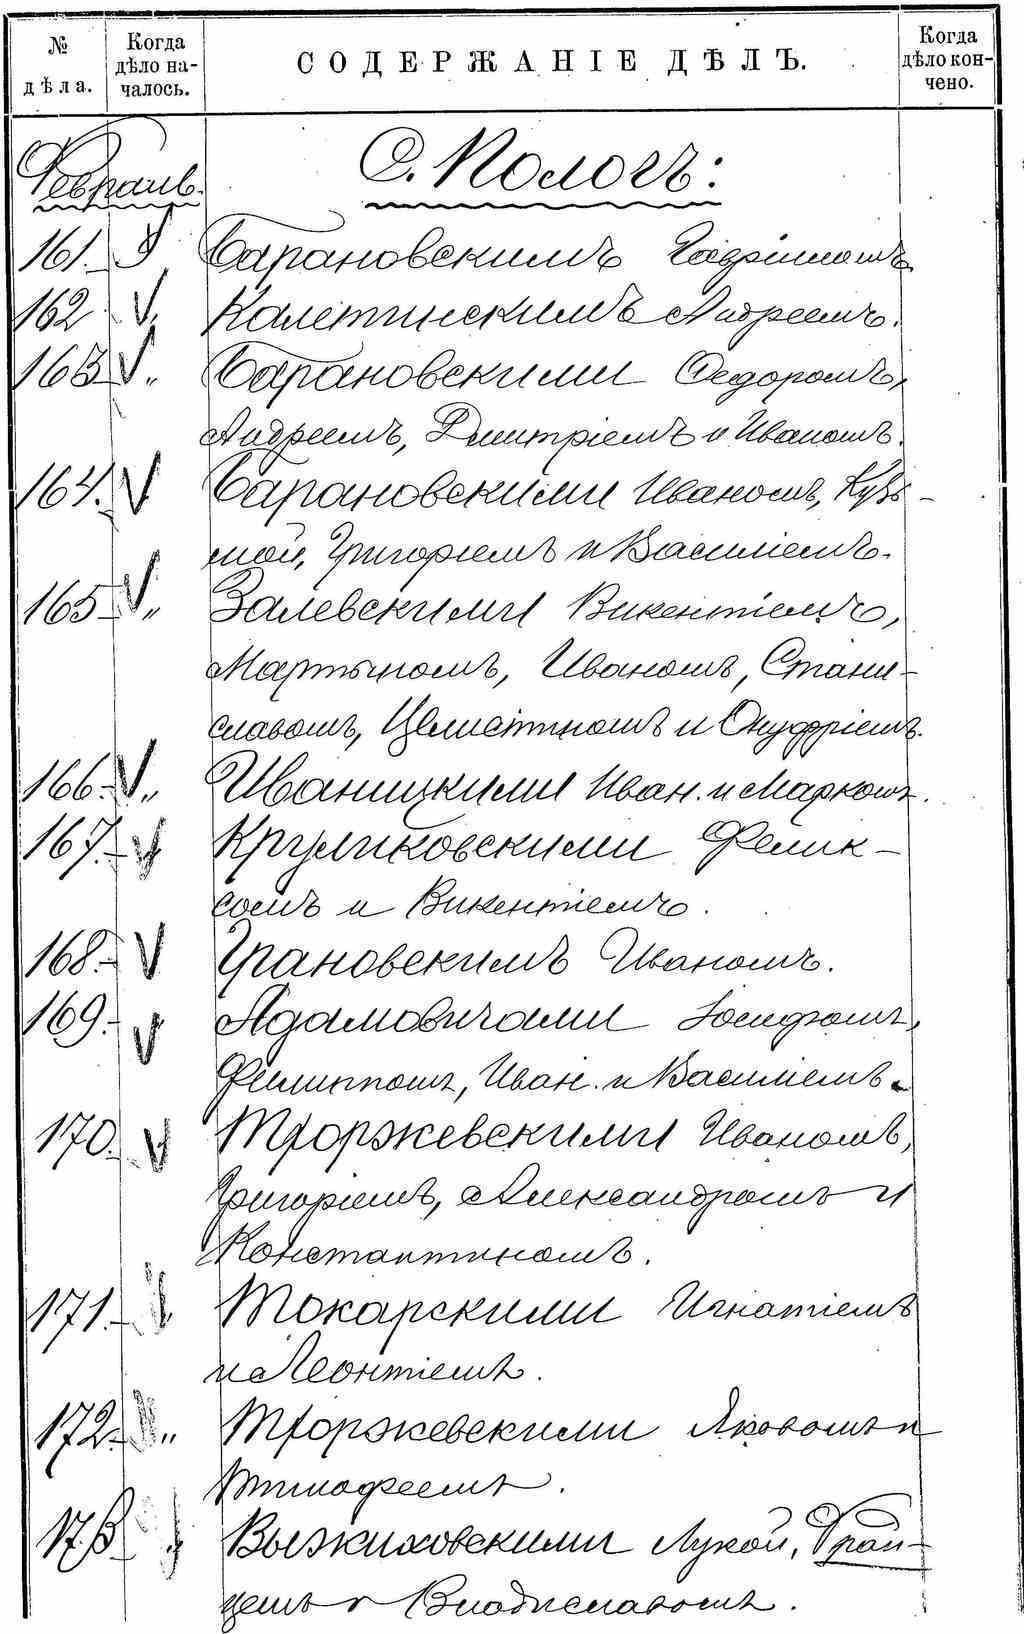 № дѣла.
Когда дѣло на-чалось.
СОДЕРЖАНІЕ ДѢЛЪ.
Когда дѣло кон-чено.
Февраль.
С. Пологъ:
161. Барановскимъ
162 Калетинскимъ Андреемъ.
163 „ Барановскими Федоромъ,
Андреемъ, Дмитріемъ и Иваномъ.
164. Барановскими Иваномъ, Кузь-
мой, Григоріемъ и Василіемъ.
165 „ Залевскими Викентіемъ,
Мартыномъ, Иваномъ, Стани-
славомъ, Целистиномъ и Онуфріемъ.
166. „ Иваницкими Иван. и Маркомъ.
167. Круликовскими Феликс-
сомъ и Викентіемъ.
168. Грановскимъ Иваномъ.
169. Адамовичами Іосифомъ,
Филиппомъ, Иван. и Василіемъ.
170. Тхоржевскими Иваномъ,
Григоріемъ, Александромъ и
Константиномъ.
171. Токарскими Игнатіемъ
и Леонтіемъ.
172. „ Тхоржевскими Яковомъ и
Тимофеемъ.
173 Выжиковскими Лукой, Фран-
цемъ и Владиславомъ.